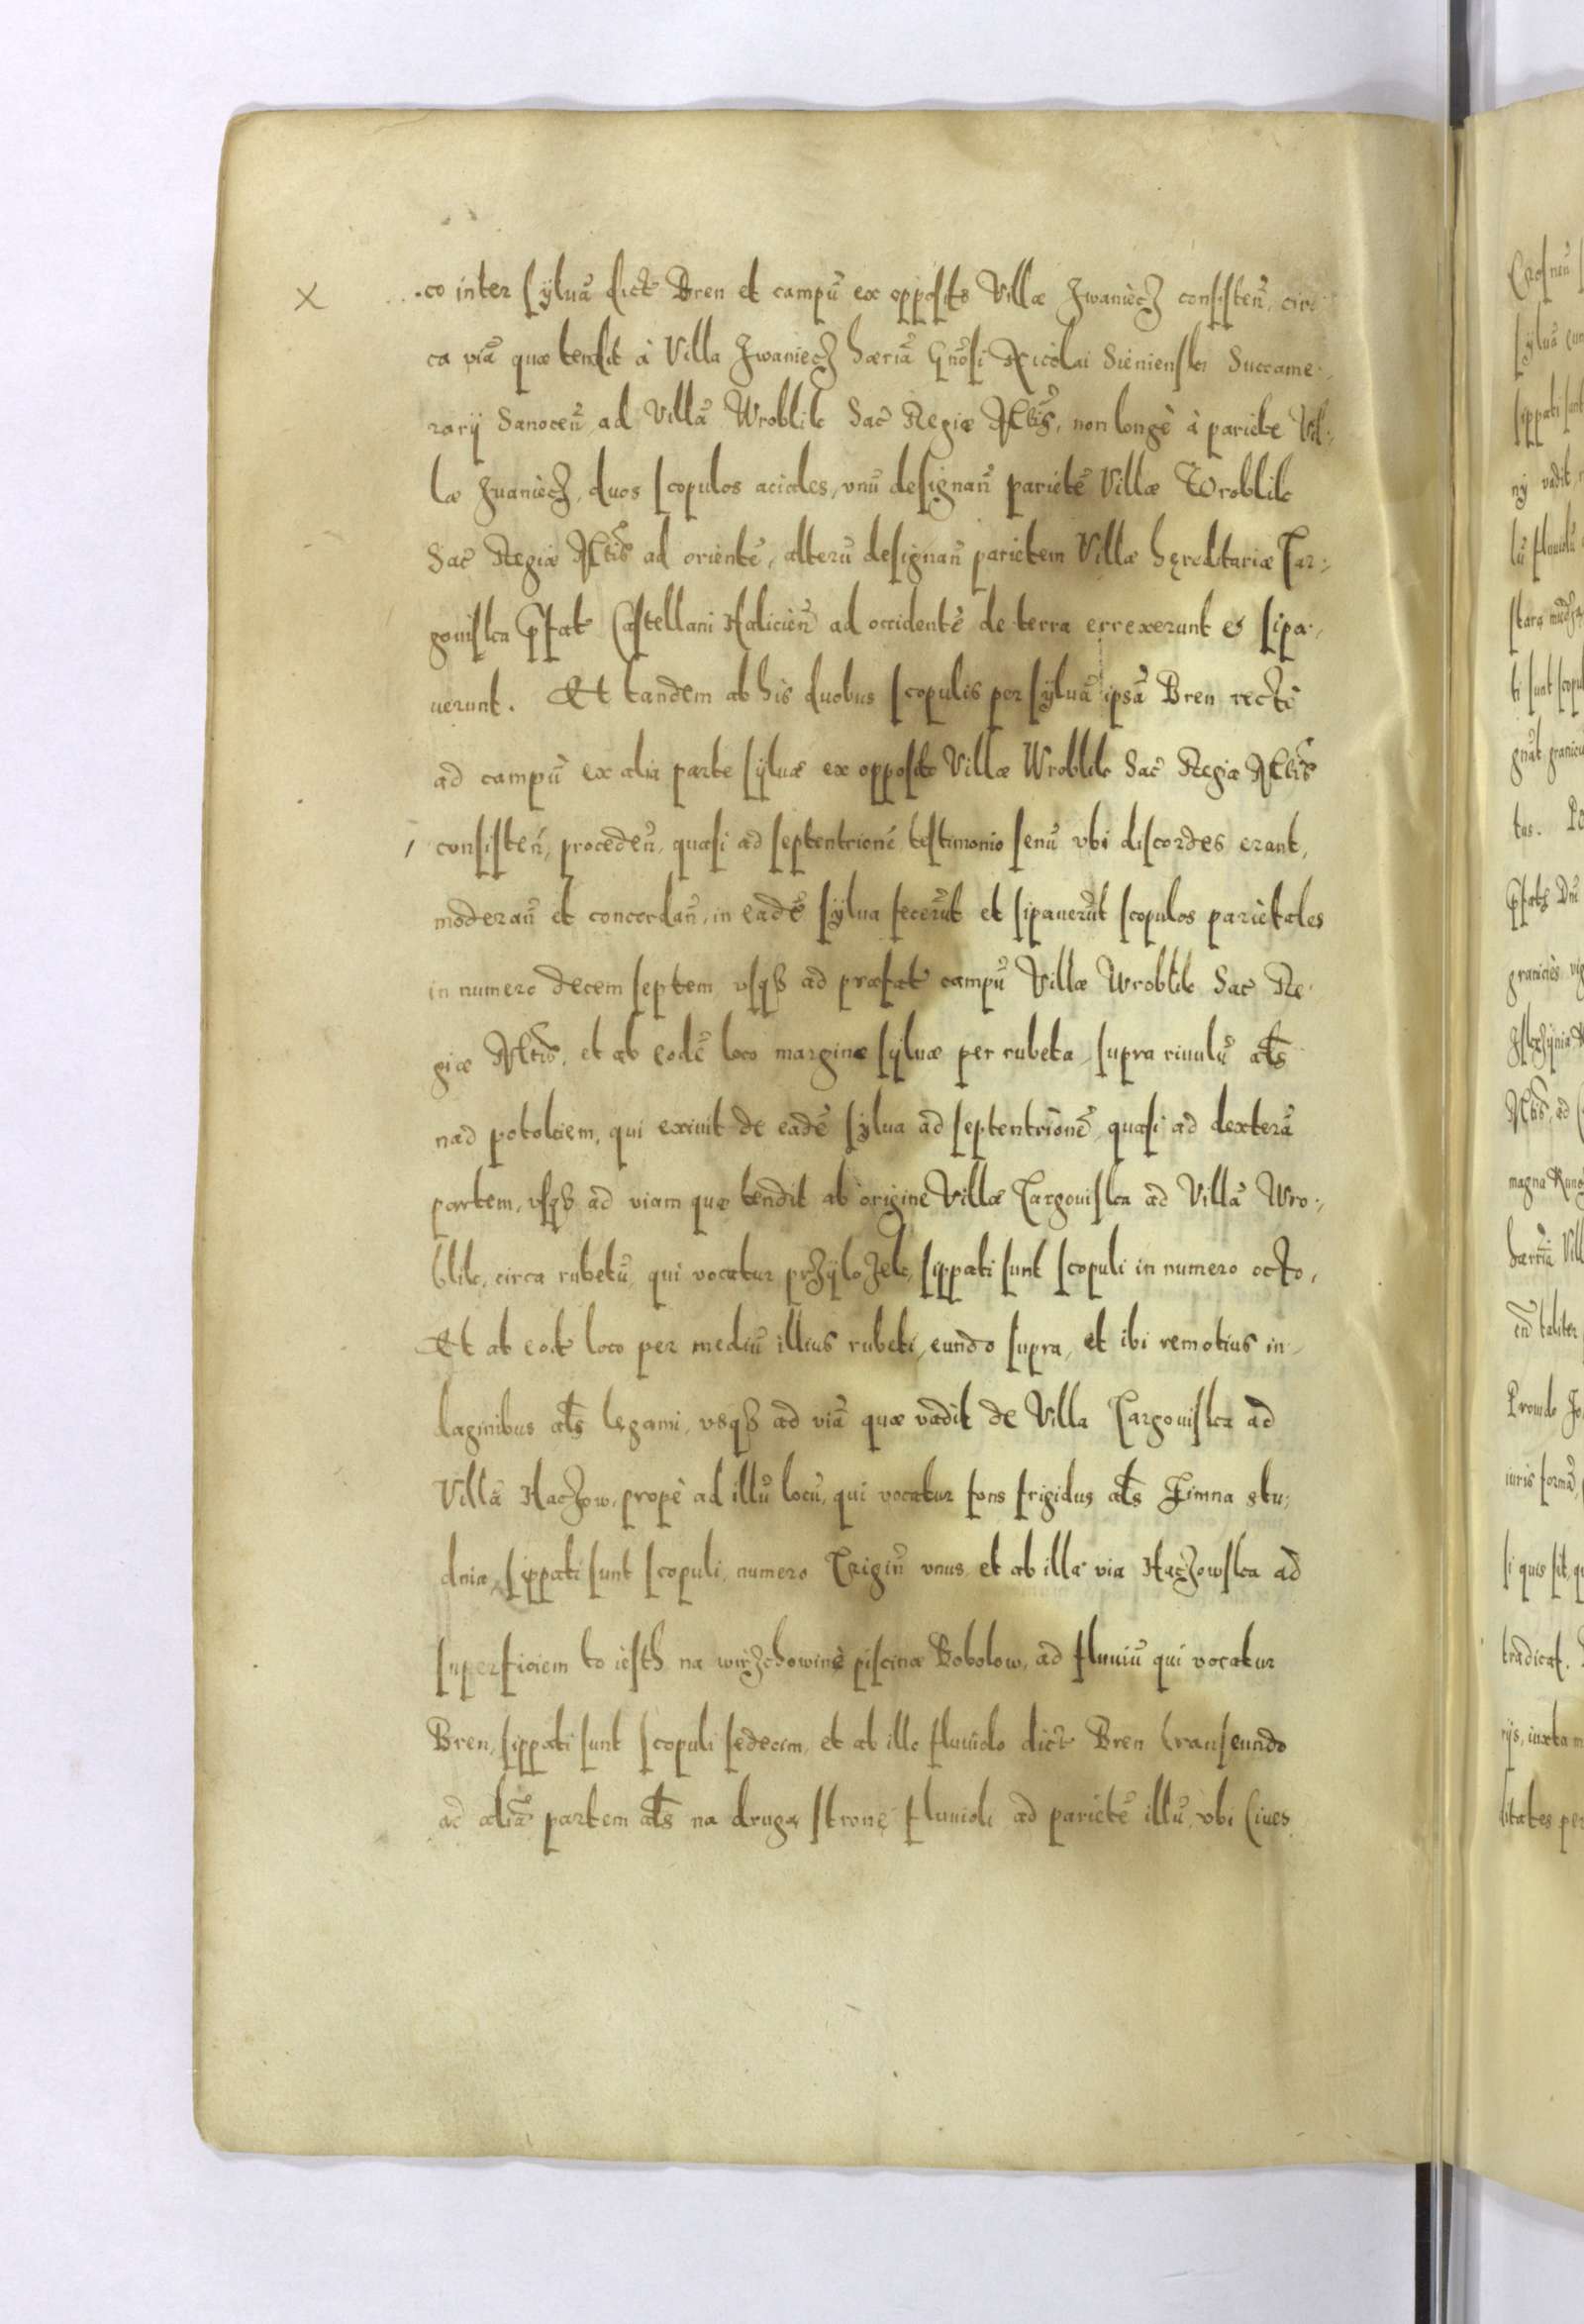 X
co inter syluã dict Bren et campũ ex opposito Villæ Jwaniecz consisteñ, cir
ca viã quæ tendit à Villa Jwaniecz hæriã Gñosi Nicolai Sienienski Succame:
rarij Sanoceñ, ad Villã Wroblik Sac̃ Regiæ Mttis, non longè à pariete Vil:
læ Jvaniecz, duos scopulos aciales, vnũ designañ parietẽ Villæ Wroblik
Sac̃ Regiæ Mttis ad orientẽ, alterũ designañ parietem Villæ hęreditariæ Tar:
gouiska Pfat Castellani Halicieñ ad occidentẽ de terra errexerunt & sipa,
uerunt. Et tandem ab his duobus scopulis per syluã ipsã Bren rectè
ad campũ ex alia parte syluæ ex opposito Villæ Wroblik Sac̃ Regiæ Mttis
consisteñ, procedeñ, quasi ad septentrionẽ testimonio senũ vbi discordes erant,
moderañ et concordañ, in eadẽ sylua fecerũt et sipauerũt scopulos parietales
in numero decem septem vsqз ad præfat campũ Villæ Wroblik Sac̃ Re
giæ Mttis, et ab eodẽ loco margine syluæ per rubeta, supra riuulũ als
nad potokiem, qui exiuit de eadẽ sylua ad septentrionẽ, quasi ad dexterã
partem, vsqз ad viam quæ tendit ab origine Villæ Targouiska ad Villã Wro:
blik, circa rubetũ, qui vocatur przÿlozek, sippati sunt scopuli in numero octo,
Et ab eod loco per mediũ illius rubeti, eundo supra, et ibi remotius in,
daginibus als lęgami, vsqз ad viã quæ vadit de Villa Targouiska ad
Villã Haczow, propè ad illũ locũ, qui vocatur fons frigidus als Zimna stu:
dnia, sippati sunt scopuli, numero Trigiñ vnus, et ab illa via Haczowska ad
superficiem to iesth na wirzchowinè piscinæ Bobolow, ad fluuiũ qui vocatur
Bren, sippati sunt scopuli sedecim, et ab illo fluuiolo dict Bren transeundo
ad aliã partem als na drugą stronę fluuioli ad parietẽ illũ, vbi Ciues